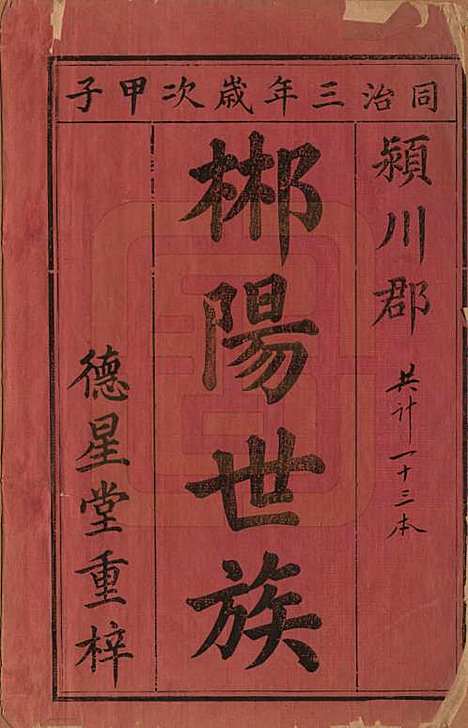 同治三年歲次甲子
潁川郡
共計一十三本
郴陽世族
德星堂重梓